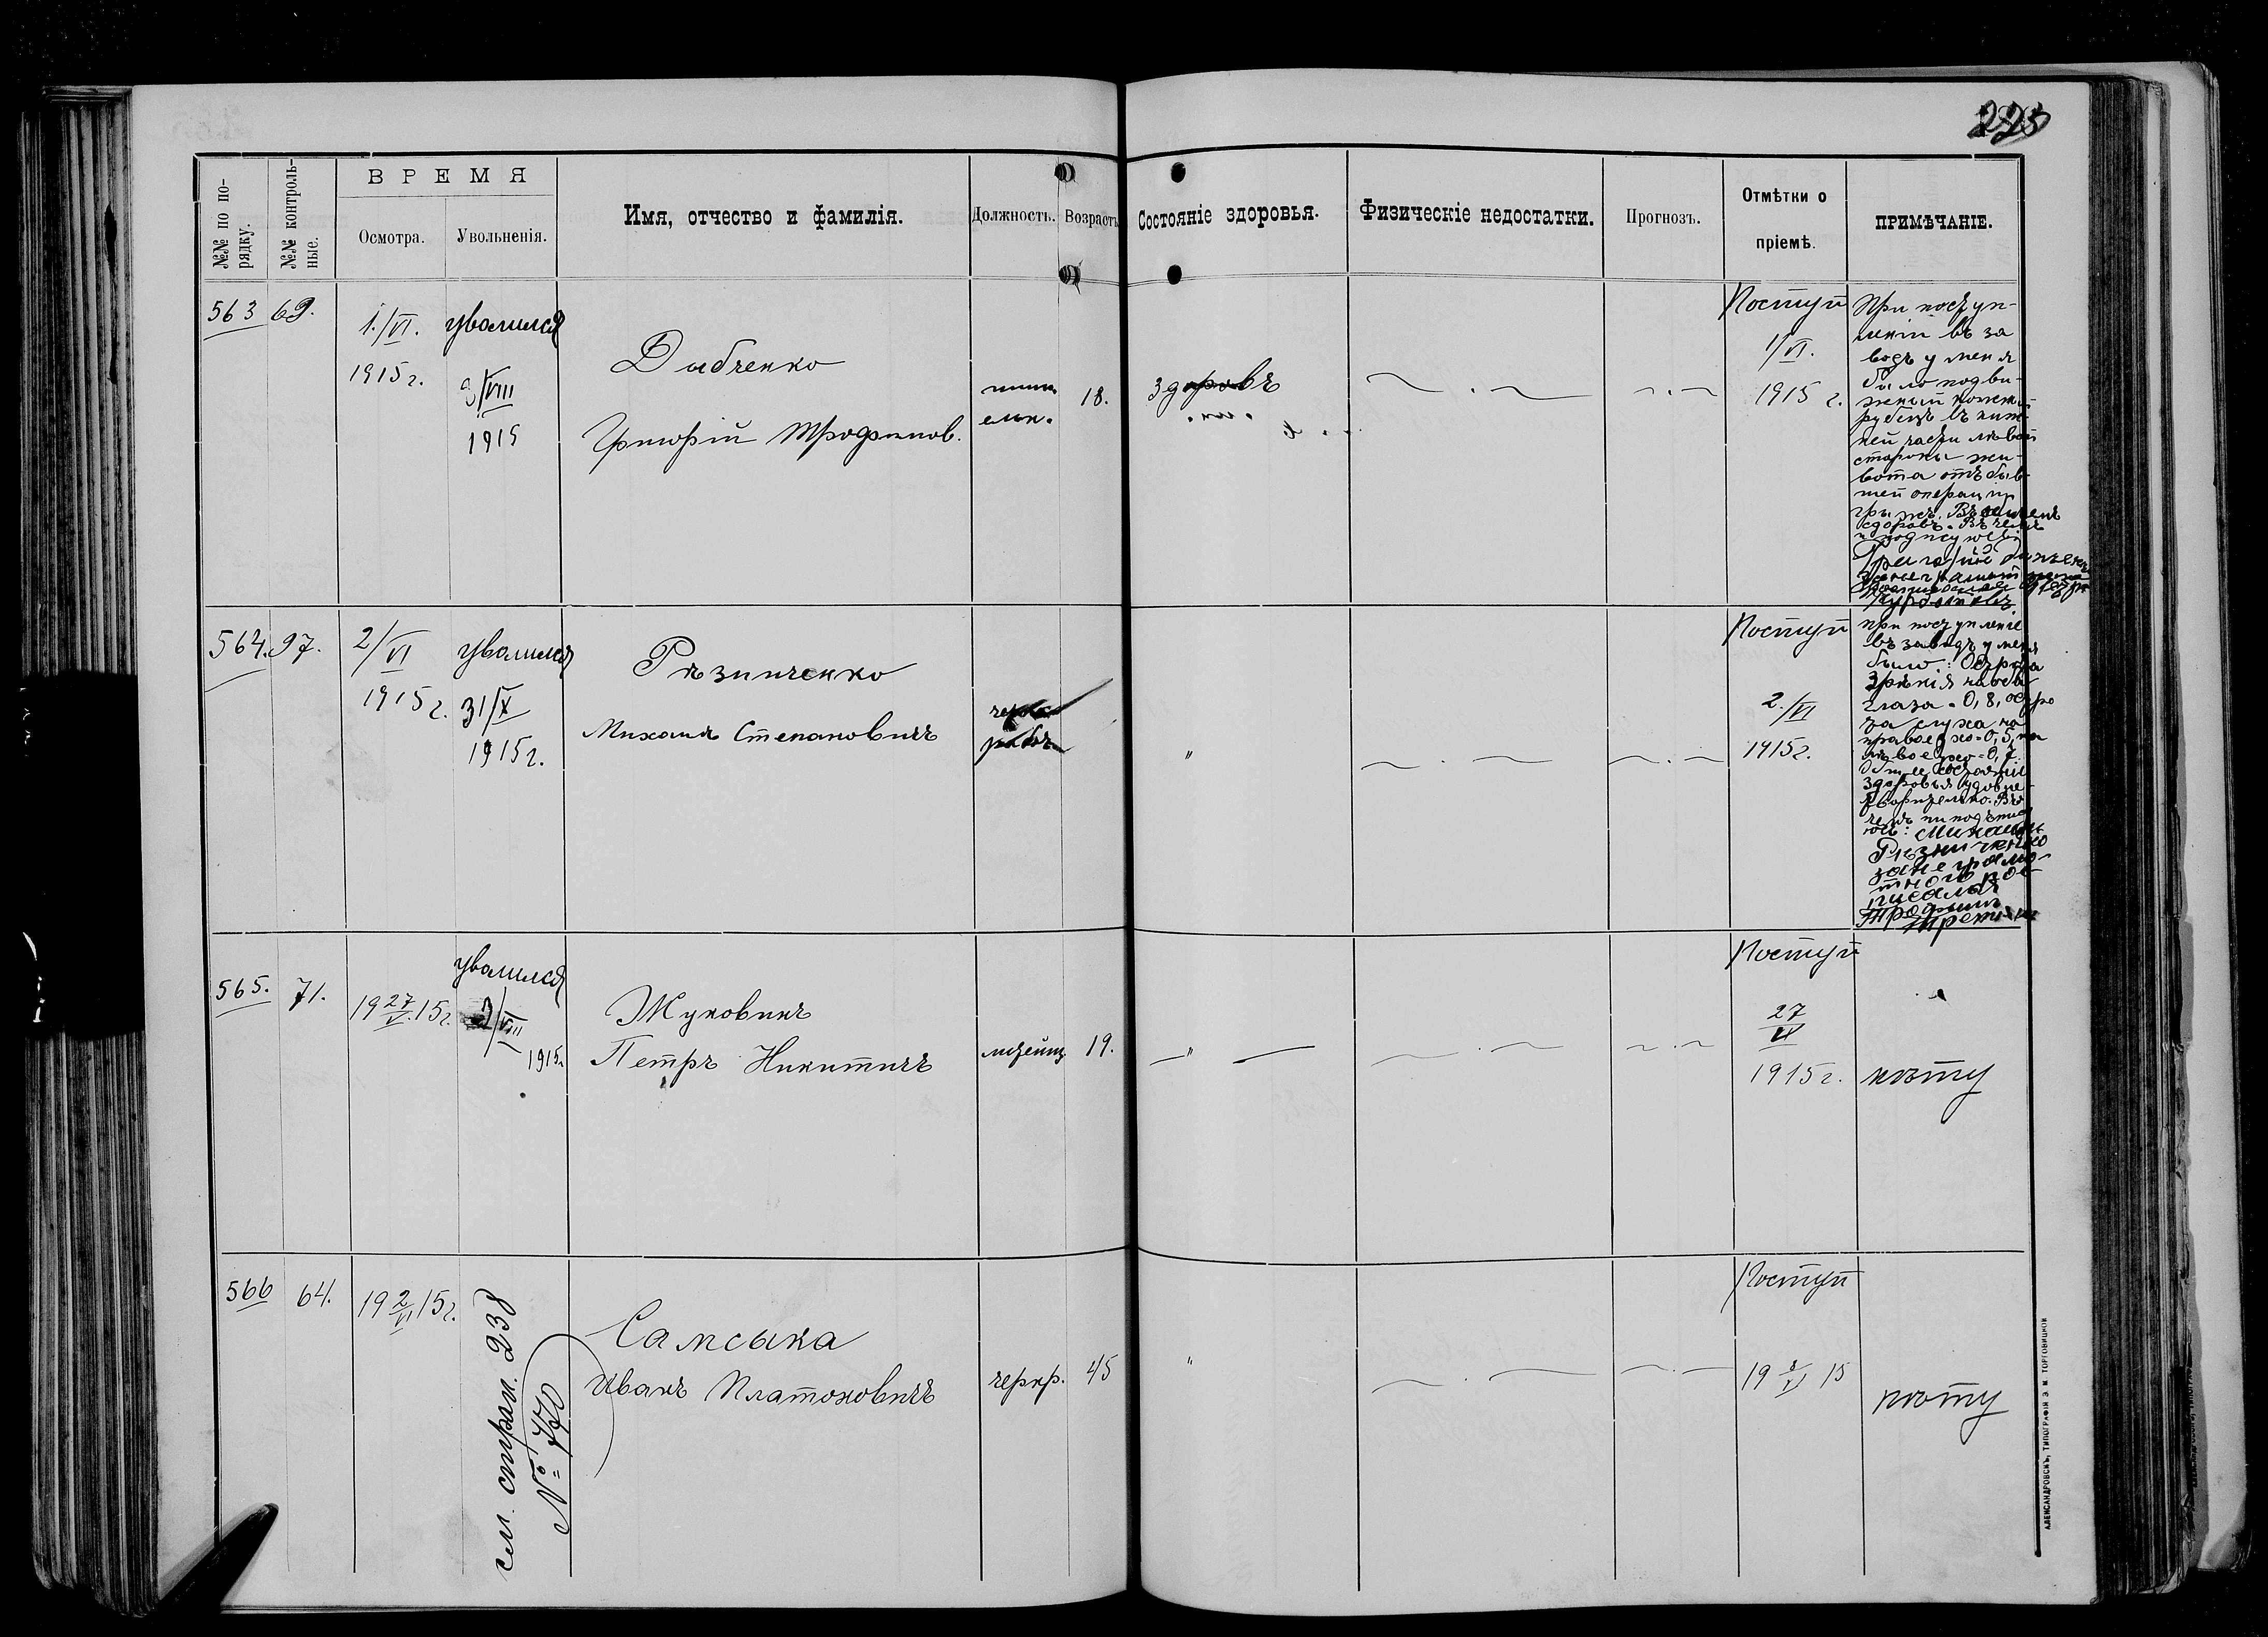 225
№№ по по-
рядку.
№№ контроль-
ные.
ВРЕМЯ
Осмотра.
Увольненія.
Имя, отчество и фамилія.
Должность.
Возрастъ
Состояніе здоровья.
Физическіе недостатки.
Прогнозъ.
Отмѣтки о
пріемѣ.
ПРИМѢЧАНІЕ.
563
69.
1./VI.
1915 г.
уволился
/VIII
1915
Дибченко
Григорій Трофимов.
18.
здоровъ
Поступ
1/VI.
1915 г.
При поступ-
леніи въ за
водъ у меня
было подви-
жный
рубецъ въ ниж-
ней части лѣвой
стороны жи-
вота отъ быв-
шей операціи
грыжи.
здоровъ. Въ чемъ
и подписуюсь
Григорій
564.
97.
2/VI
1915 г.
уволился
31/X
1915 г.
Рѣзниченко
Михаилъ Степановичъ
"
Поступ
2./VI
1915 г.
при поступленіе
въ заводъ у меня
было: Острота
зрѣнія
глаза = 0,8, остро
та слуха на
правое ухо = 0,5, на
лѣвое ухо = 0,7.
Общее состояніе
здоровья удовле-
творительно. Въ
чемъ и подпис
юсь: Михаилъ
Рѣзниченко
за не грамо-
тного рос-
писался
Трофимъ
565.
71.
19 27/V. 15 г.
уволился
/VIII
1915 г.
Жуковинъ
Петръ Никитичъ
литейщ.
19.
"
Поступ
27
VI
1915 г.
нѣту
566
64.
19 2/VI 15 г.
см. стран. 238
№ 770
Самсыка
Иванъ Платоновичъ
чернр.
45
"
Поступ
19 /VI 15
нѣту
АЛЕКСАНДРОВСКЪ, ТИПОГРАФІЯ З. М. ТОРГОВИЦКОЙ